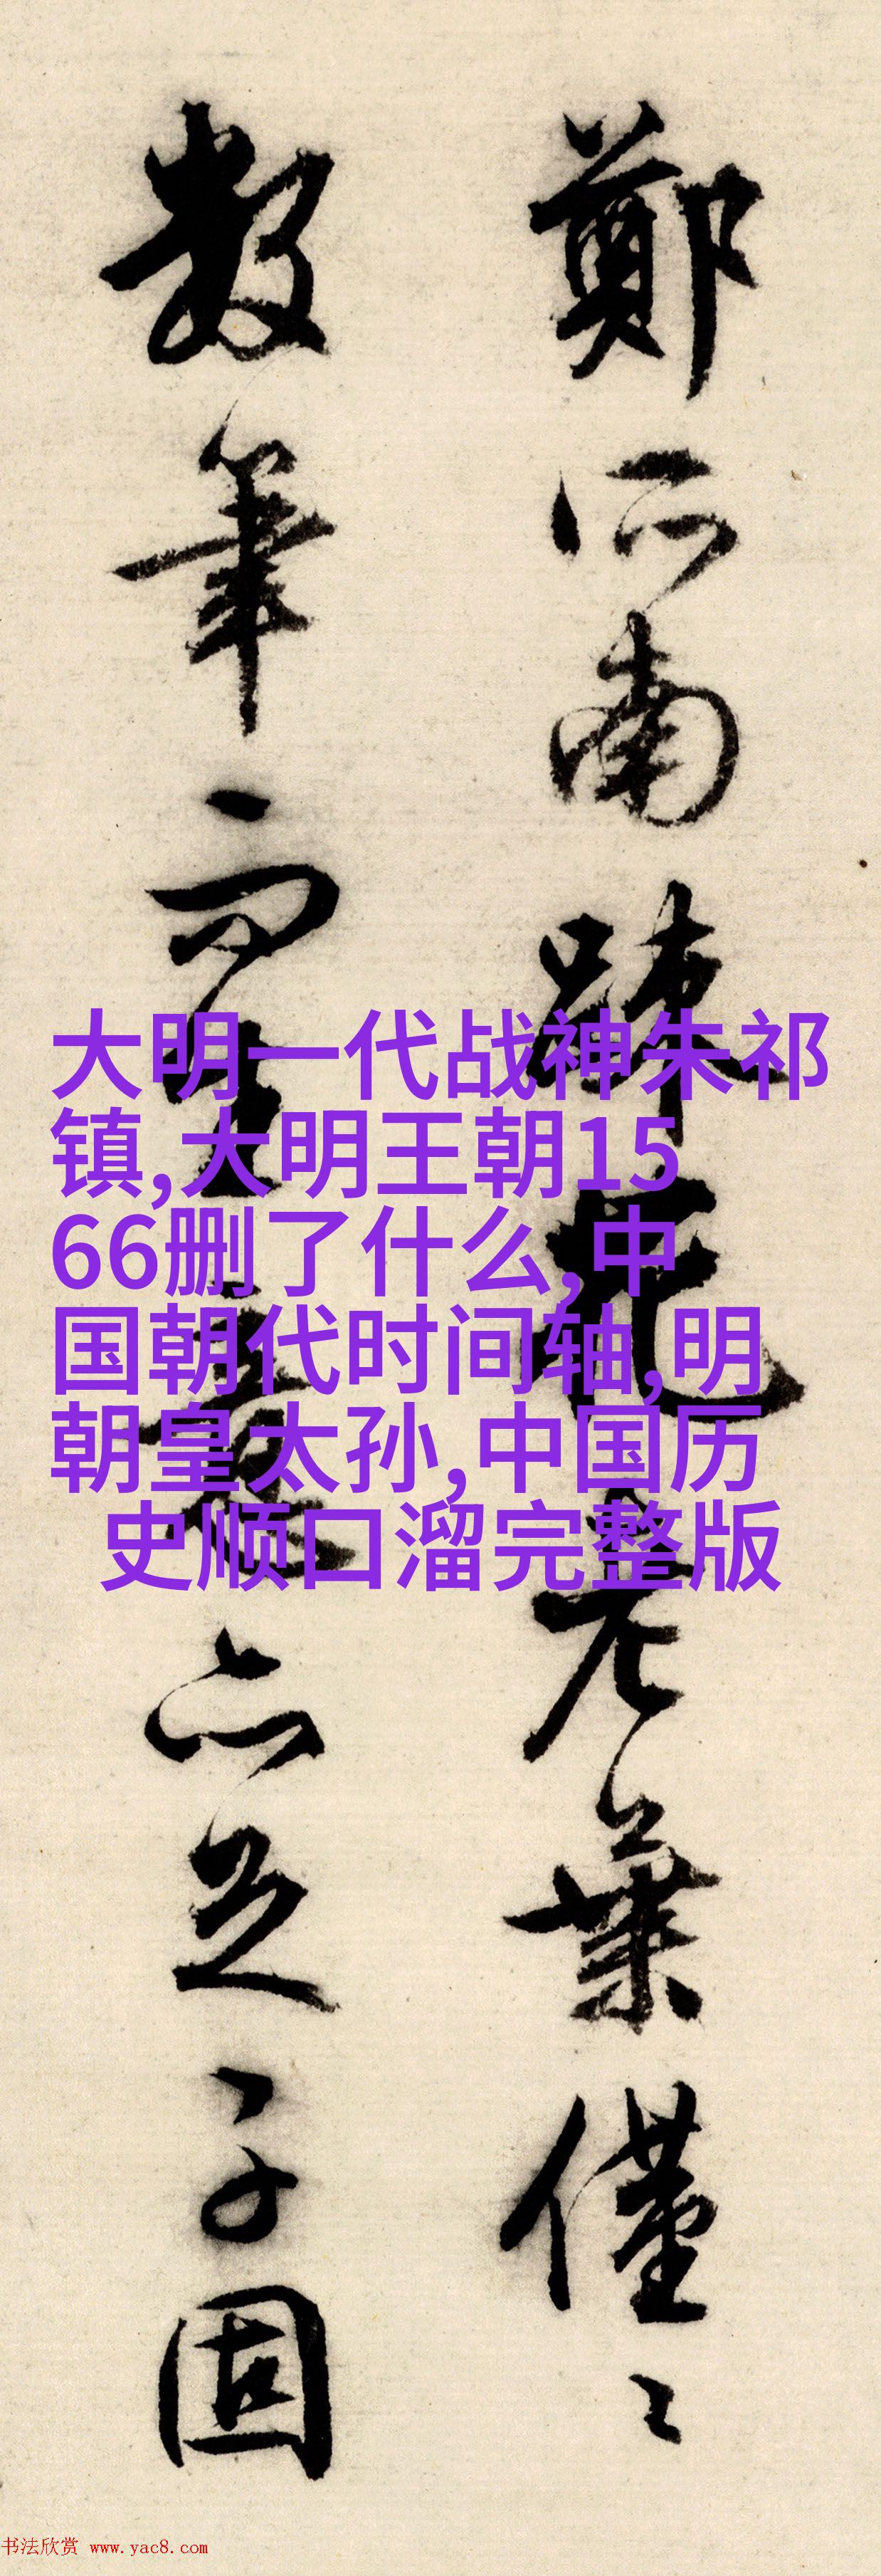 鄭所南疎花老葉僅〻
數筆而生意亦足子固
大明一代战神朱祁
镇,大明王朝15
66删了什么,中
国朝代时间轴,明
朝皇太孙,中国历
史顺口溜完整版
书法欣赏 www.yac8.com